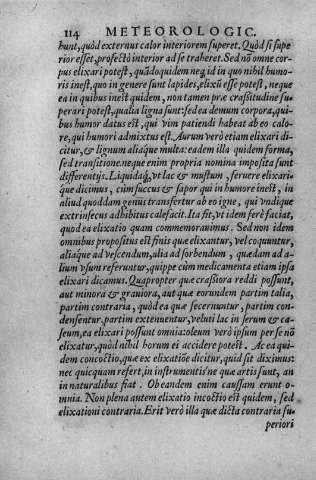 114 METEOROLOGIC.
hunt, quòd externus calor interiorem superet. Quòd si supe
rior esset, profectò interior ad se traheret. Sed nõ omne cor-
pus elixari potest, quãdoquidem neq, id in quo nihil humo-
ris inest, quo in genere sunt lapides, elixũ esse potest, neque
ea in quibus inest quidem, non tamen præ crassitudine su-
perari potest, qualia ligna sunt: sed ea demum corpora, qui-
bus humor datus est, qui vim patiendi habeat ab eo calo-
re, qui humori admixtus est. Aurum verò etiam elixari di-
citur, & lignum aliáque multa: eadem illa quidem forma,
sed translatione. neque enim propria nomina imposita sunt
differentijs. Liquidaq́, vt lac & mustum, feruere elixarí-
que dicimus, cùm succus & sapor qui in humore inest, in
aliud quoddam genus transfertur ab eo igne, qui vndique
extrinsecus adhibitus calefacit. Ita fit, vt idem ferè faciat,
quod ea elixatio quam commemorauimus. Sed non idem
omnibus propositus est finis quæ elixantur, vel coquuntur,
aliáque ad vescendum, alia ad sorbendum, quædam ad a-
lium vsum referuntur, quippe cùm medicamenta etiam ipsa
elixari dicamus. Quapropter quæ crassiora reddi possunt,
aut minora & grauiora, aut quæ eorundem partim talia,
partim contraria, quòd ea quæ secernuntur, partim con-
densentur, partim extenuentur, veluti lac in serum & ca-
seum, ea elixari possunt omnia: oleum verò ipsum per se nõ
elixatur, quòd nihil horum ei accidere potest. Ac ea qui-
dem concoctio, quæ ex elixatiõe dicitur, quid sit diximus:
nec quicquam refert, in instrumentis'ne quæ artis sunt, an
in naturalibus fiat. Ob eandem enim caussam erunt o-
mnia. Non plena autem elixatio incoctio est quidem, sed
elixationi contraria. Erit verò illa quæ dicta contraria su-
periori